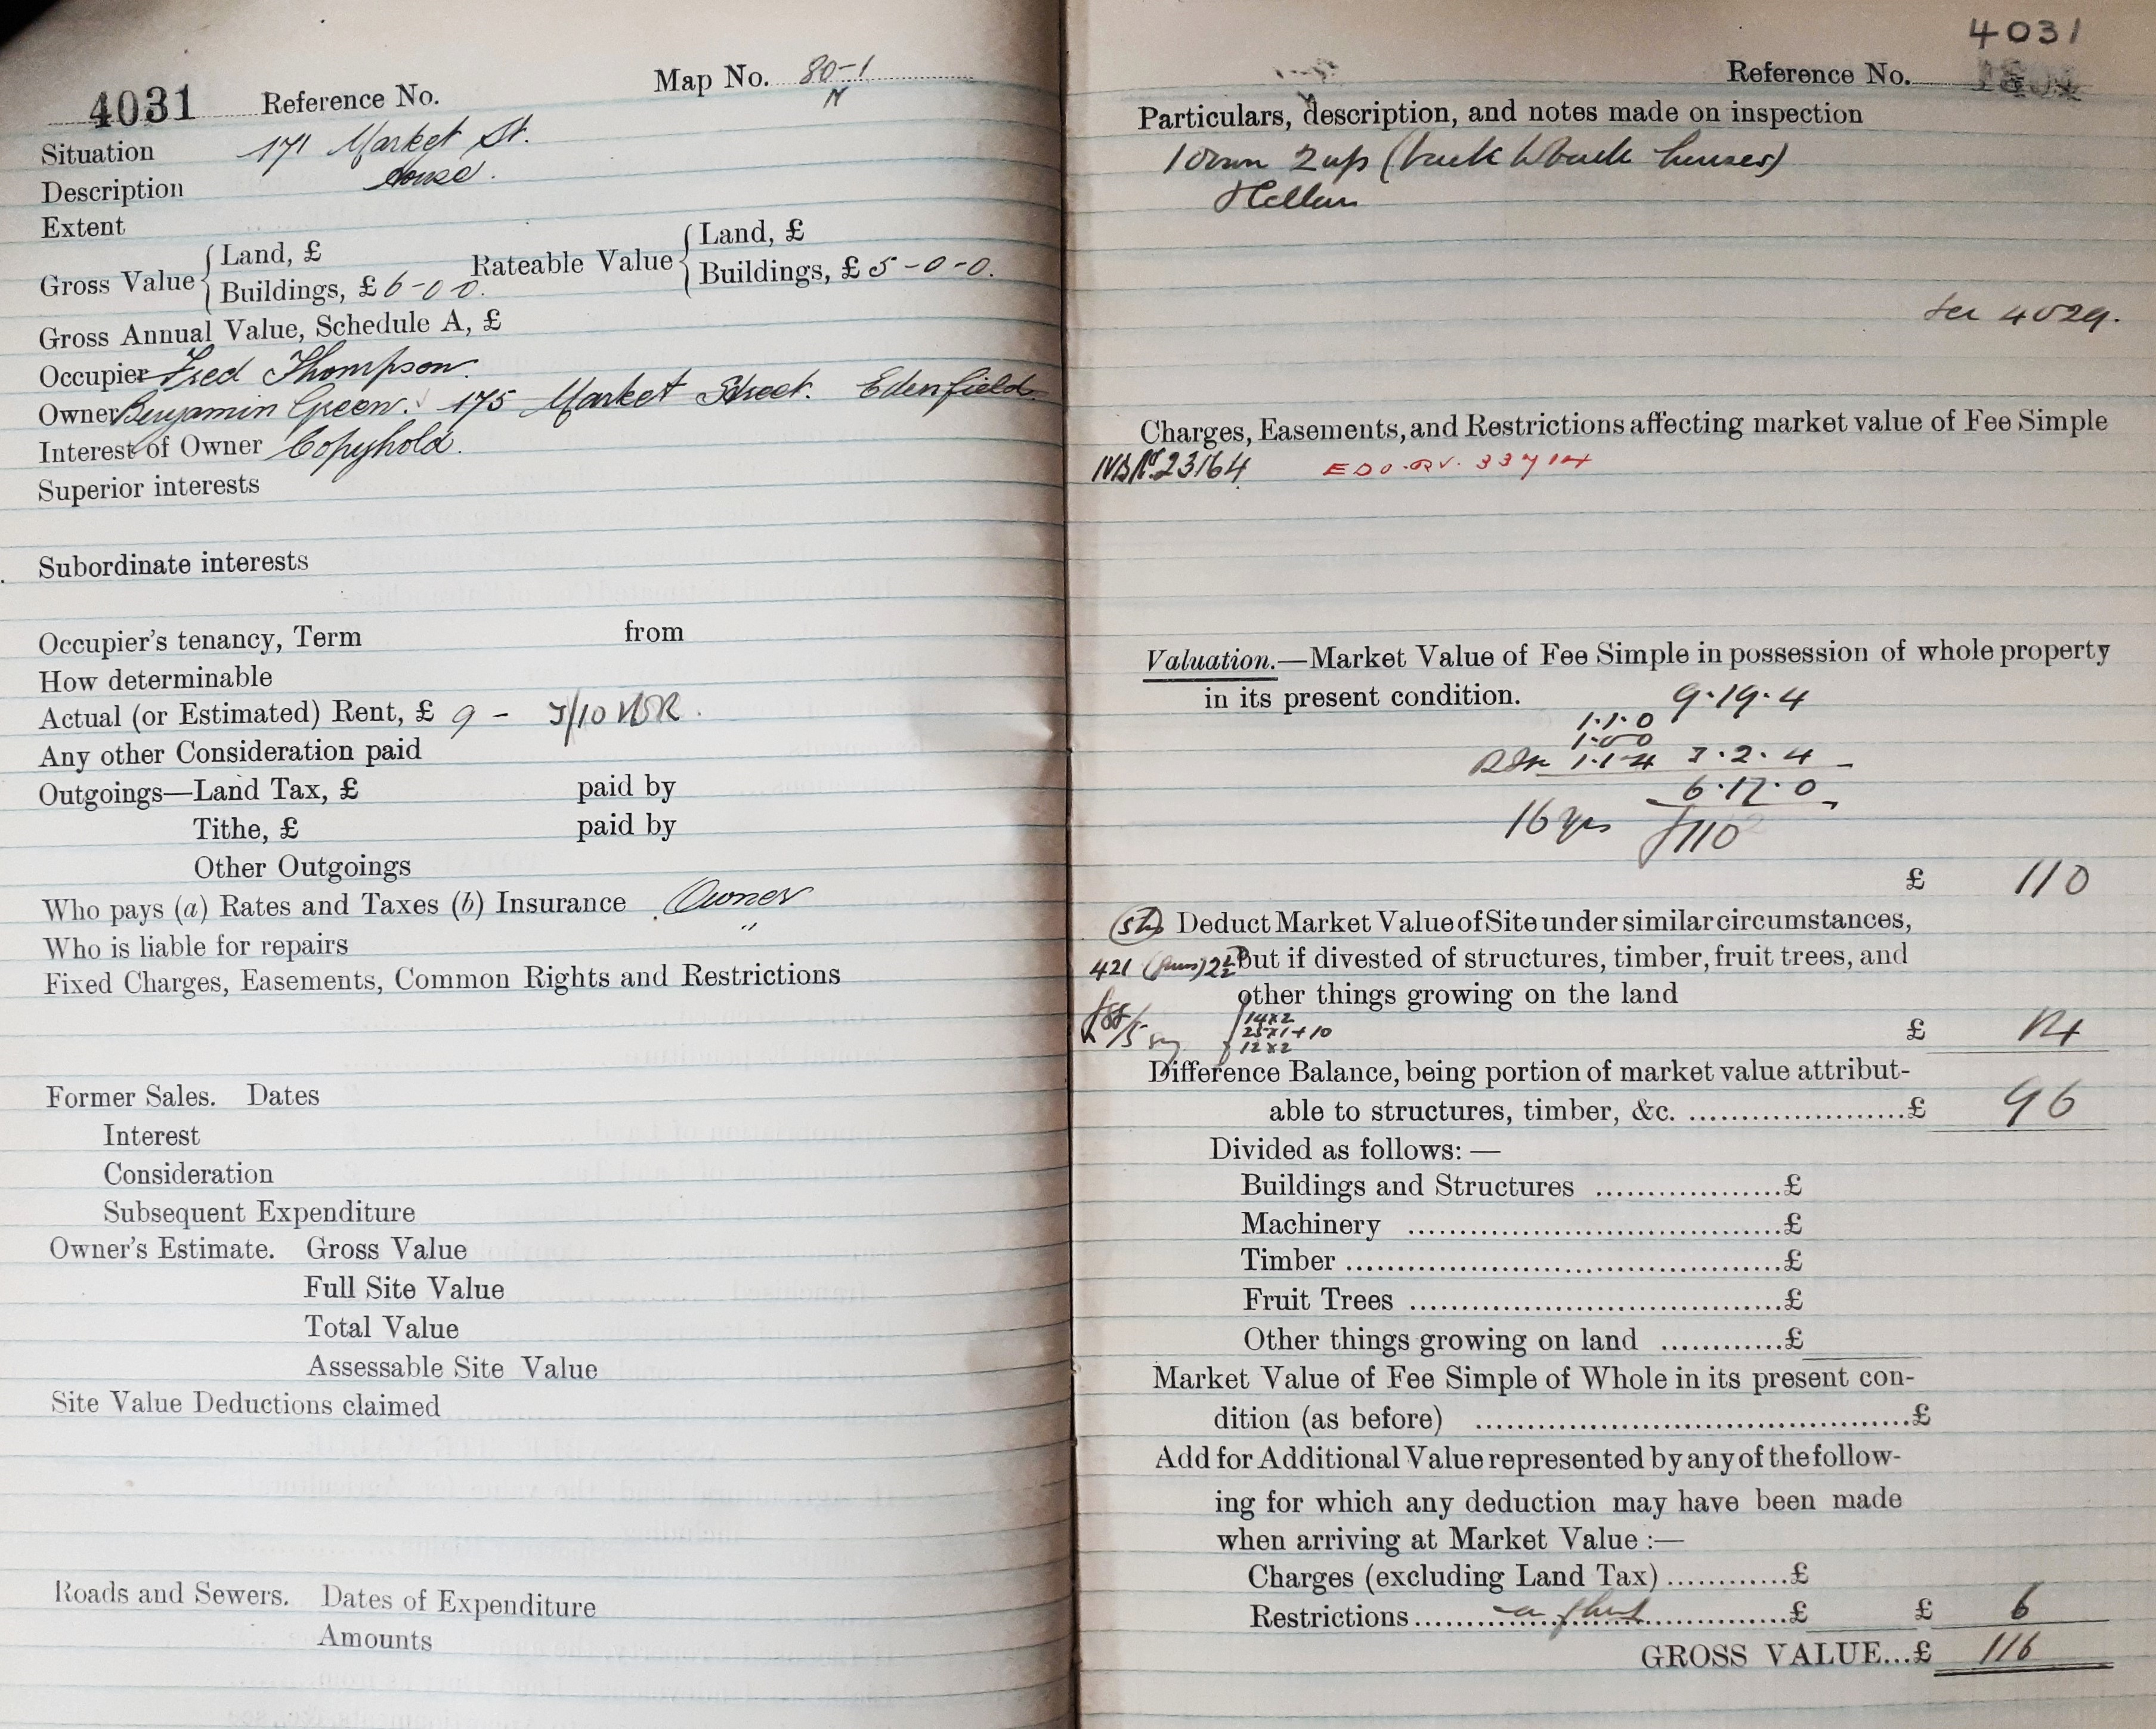 4031 Reference No. Map No. 80-1
N
Situation 171 Market St.
Description House.
Extent
Gross Value { Land, £ Rateable Value { Land, £
Buildings, £ 6-0 0. Buildings, £ 5-0-0.
Gross Annual Value, Schedule A, £
Occupier Fred Thompson.
Owner Benjamin Green. 175 Market Street. Edenfield
Interest of Owner Copyhold.
Superior interests
Subordinate interests
Occupier's tenancy, Term from
How determinable
Actual (or Estimated) Rent, £ 9 -
Any other Consideration paid
Outgoings—Land Tax, £ paid by
Tithe, £ paid by
Other Outgoings
Who pays (a) Rates and Taxes (b) Insurance Owner
Who is liable for repairs "
Fixed Charges, Easements, Common Rights and Restrictions
Former Sales. Dates
Interest
Consideration
Subsequent Expenditure
Owner's Estimate. Gross Value
Full Site Value
Total Value
Assessable Site Value
Site Value Deductions claimed
Roads and Sewers. Dates of Expenditure
Amounts
4031
Reference No.
Particulars, description, and notes made on inspection
1 down 2 up (back to back houses)
See 4029.
Charges, Easements, and Restrictions affecting market value of Fee Simple
23164
Valuation.—Market Value of Fee Simple in possession of whole property
in its present condition. 9.19.4
1.1.0
1.0.0
1.1.4 3.2.4
6.17.0
16 yrs £110
£ 110
Deduct Market Value of Site under similar circumstances,
421 but if divested of structures, timber, fruit trees, and
other things growing on the land
14x2
25x1+10
12x2
£ 14
Difference Balance, being portion of market value attribut-
able to structures, timber, &c. £ 96
Divided as follows: —
Buildings and Structures £
Machinery £
Timber £
Fruit Trees £
Other things growing on land £
Market Value of Fee Simple of Whole in its present con-
dition (as before) £
Add for Additional Value represented by any of the follow-
ing for which any deduction may have been made
when arriving at Market Value :—
Charges (excluding Land Tax) £
Restrictions £ £ 6
GROSS VALUE...£ 116